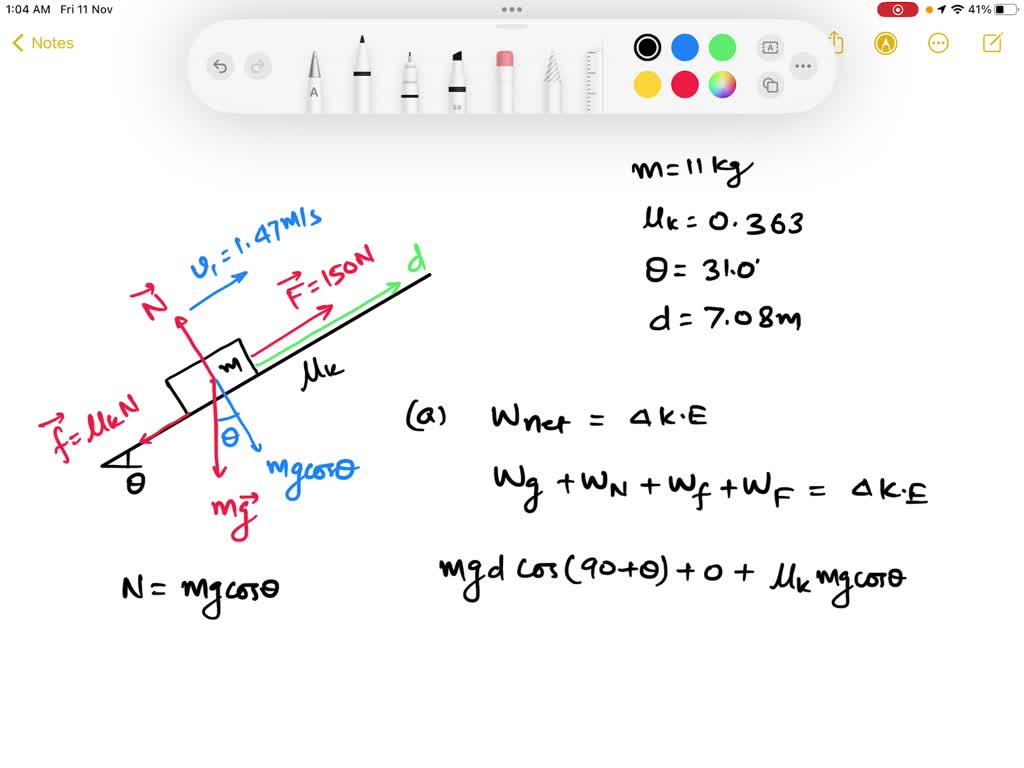 1:04 AM Fri 11 Nov
41%
Notes
A
59
A
m = 11 kg
μk = 0.363
θ = 31.0°
d = 7.08m
v₁ = 1.47m/s
N⃗
F⃗ = 150N
d
m
μk
f⃗ = μkN
θ
θ
mgcosθ
mg⃗
N = mgcosθ
(a) Wnet = ΔK.E
Wg + WN + Wf + WF = ΔK.E
mgd cos(90+θ) + 0 + μk mgcosθ